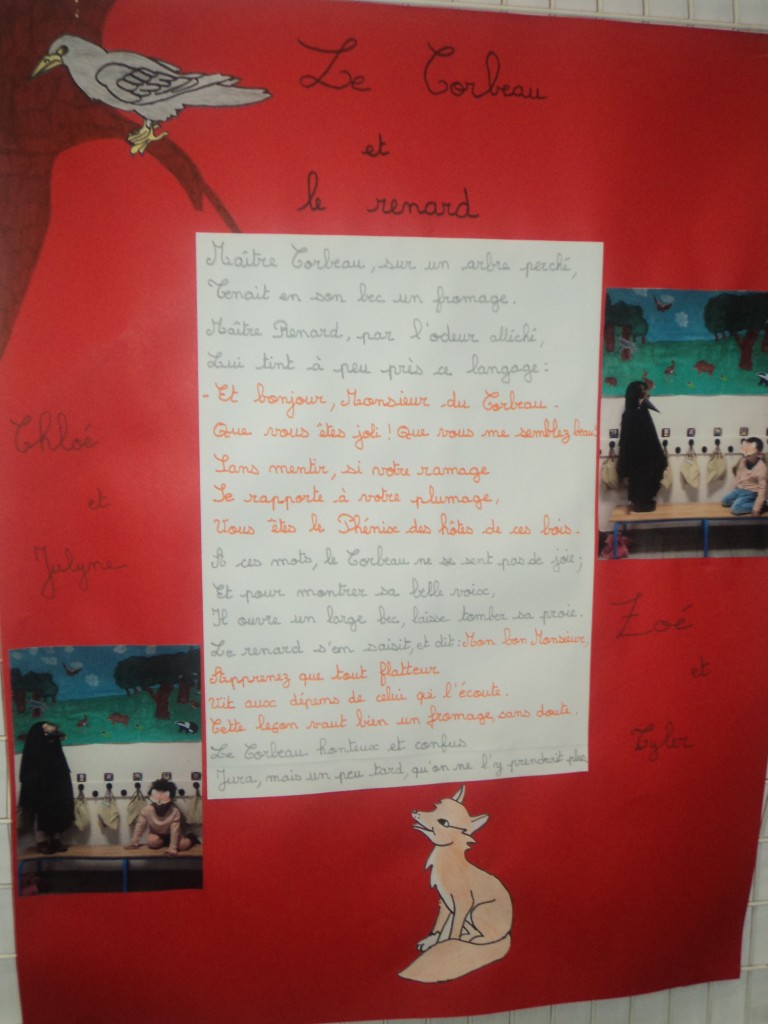 Le Corbeau
et
le renard
Maître Corbeau, sur un arbre perché,
Tenait en son bec un fromage.
Maître Renard, par l'odeur alléché,
Lui tint à peu près ce langage :
- Et bonjour, Monsieur du Corbeau.
Que vous êtes joli ! Que vous me semblez beau!
Sans mentir, si votre ramage
Se rapporte à votre plumage,
Vous êtes le Phénix des hôtes de ces bois.
A ces mots, le Corbeau ne se sent pas de joie ;
Et pour montrer sa belle voix,
Il ouvre un large bec, laisse tomber sa proie.
Le renard s'en saisit, et dit : Mon bon Monsieur,
Apprenez que tout flatteur
Vit aux dépens de celui qui l'écoute.
Cette leçon vaut bien un fromage, sans doute.
Le Corbeau honteux et confus
Jura, mais un peu tard, qu'on ne l'y prendrait plus.
Chloé
et
Julyne
Zoé
et
Tyler